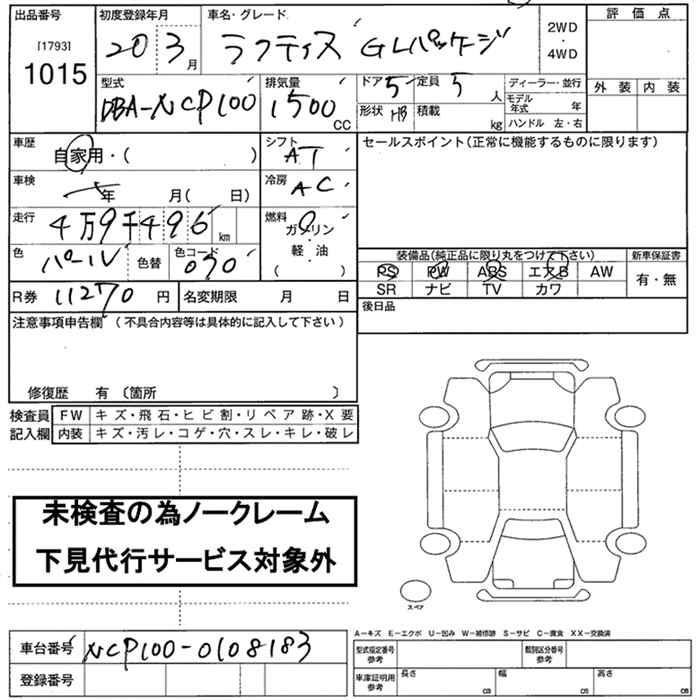 出品番号 初度登録年月 車名・グレード 評価点
[1793]
1015
20 3月
ラクティス GLパッケージ
2WD
・
4WD
外装 内装
型式 排気量 ドア 定員 ディーラー・並行
DBA-NCP100 1500 CC 5 5 人 モデル年式 年
形状 HB 積載 kg ハンドル 左・右
車歴 シフト セールスポイント(正常に機能するものに限ります)
自家用・( ) AT
車検 年 月( 日) 冷房 AC
走行 4万9千496 km 燃料 ガソリン
軽・油
( )
色 パール 色替 色コード 070
装備品(純正品に限り丸をつけて下さい) 新車保証書
PS PW ABS エアB AW 有・無
SR ナビ TV カワ
R券 11270 円 名変期限 月 日
後日品
注意事項申告欄 (不具合内容等は具体的に記入して下さい)
修復歴 有 〔箇所 〕
検査員 FW キズ・飛石・ヒビ割・リペア跡・X要
記入欄 内装 キズ・汚レ・コゲ・穴・スレ・キレ・破レ
未検査の為ノークレーム
下見代行サービス対象外
スペア
A-キズ E-エクボ U-凹み W-補修跡 S-サビ C-腐食 XX-交換済
車台番号 NCP100-0108183
型式指定番号 参考 類別区分番号 参考
登録番号
車庫証明用 参考 長さ cm 幅 cm 高さ cm